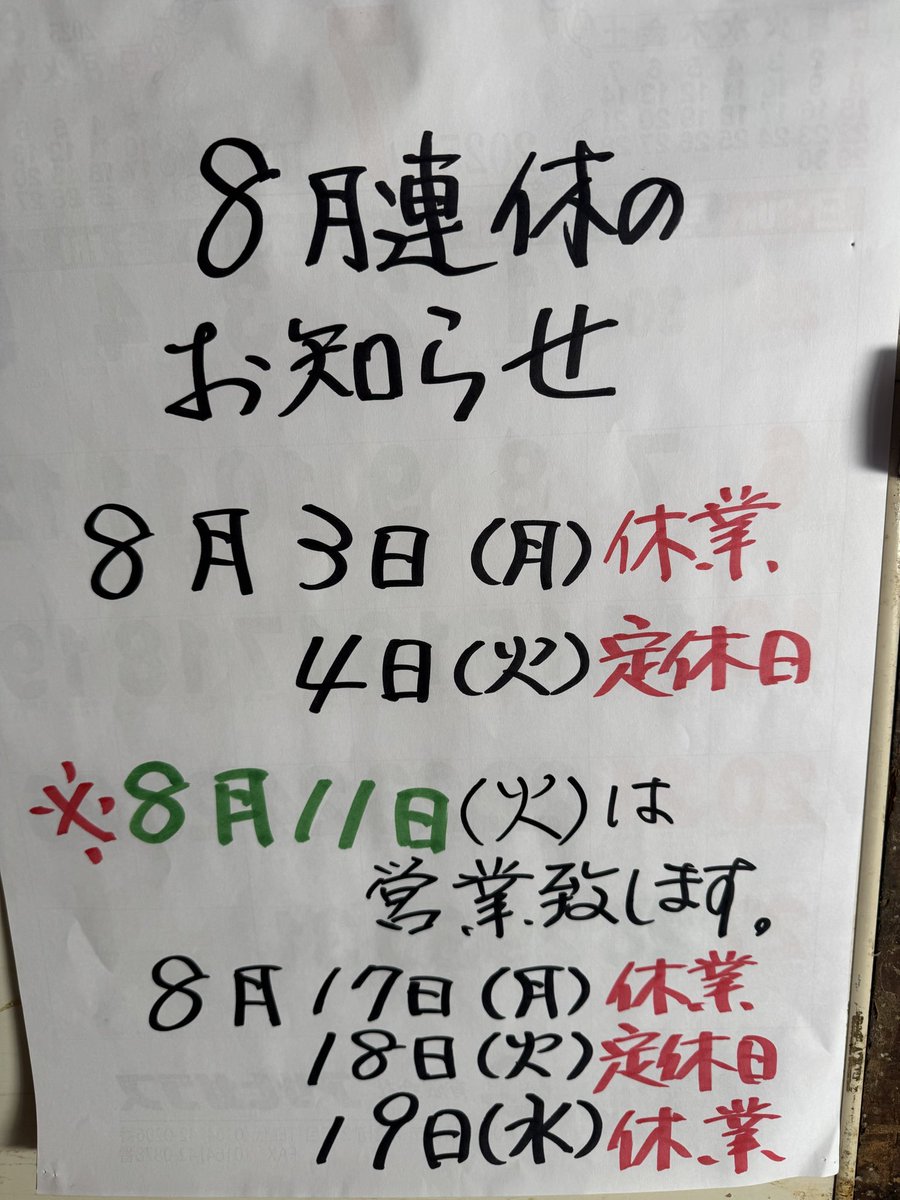 8月連休の
お知らせ
8月3日(月)休業
4日(火)定休日
※8月11日(火)は
営業致します。
8月17日(月)休業
18日(火)定休日
19日(水)休業